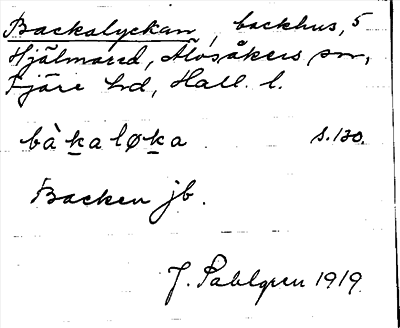 Backalyckan, backhus, 5
Hjälmared, Alvsåkers sn,
Fjäre hd, Hall. l.
bàkaløka s. 130.
Backen jb.
J. Sahlgren 1919